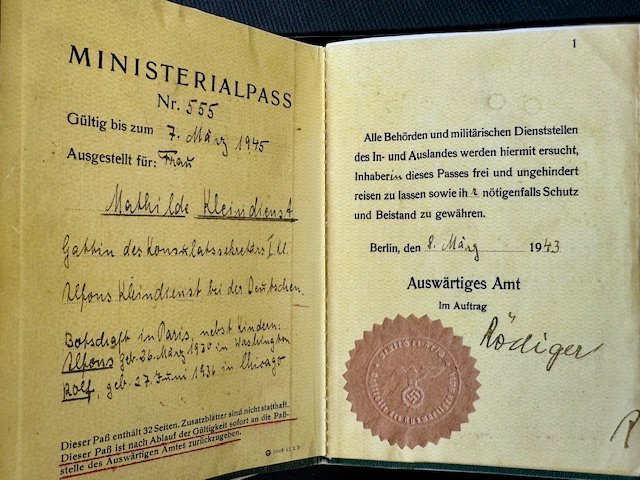 MINISTERIALPASS
Nr. 555
Gültig bis zum 7. März 1945
Ausgestellt für: Frau
Mathilde Kleindienst
Gattin des Konsulatssekretärs I. Kl.
Alfons Kleindienst bei der Deutschen
Botschaft in Paris, nebst Kindern:
Alfons, geb. 26. März 1930 in Washington
Rolf, geb. 27. Juni 1936 in Chicago
Dieser Paß enthält 32 Seiten. Zusatzblätter sind nicht statthaft.
Dieser Paß ist nach Ablauf der Gültigkeit sofort an die Paß-
stelle des Auswärtigen Amtes zurückzugeben.
1
Alle Behörden und militärischen Dienststellen
des In- und Auslandes werden hiermit ersucht,
Inhaberin dieses Passes frei und ungehindert
reisen zu lassen sowie ihr nötigenfalls Schutz
und Beistand zu gewähren.
Berlin, den 8. März 1943
Auswärtiges Amt
Im Auftrag
Rödiger